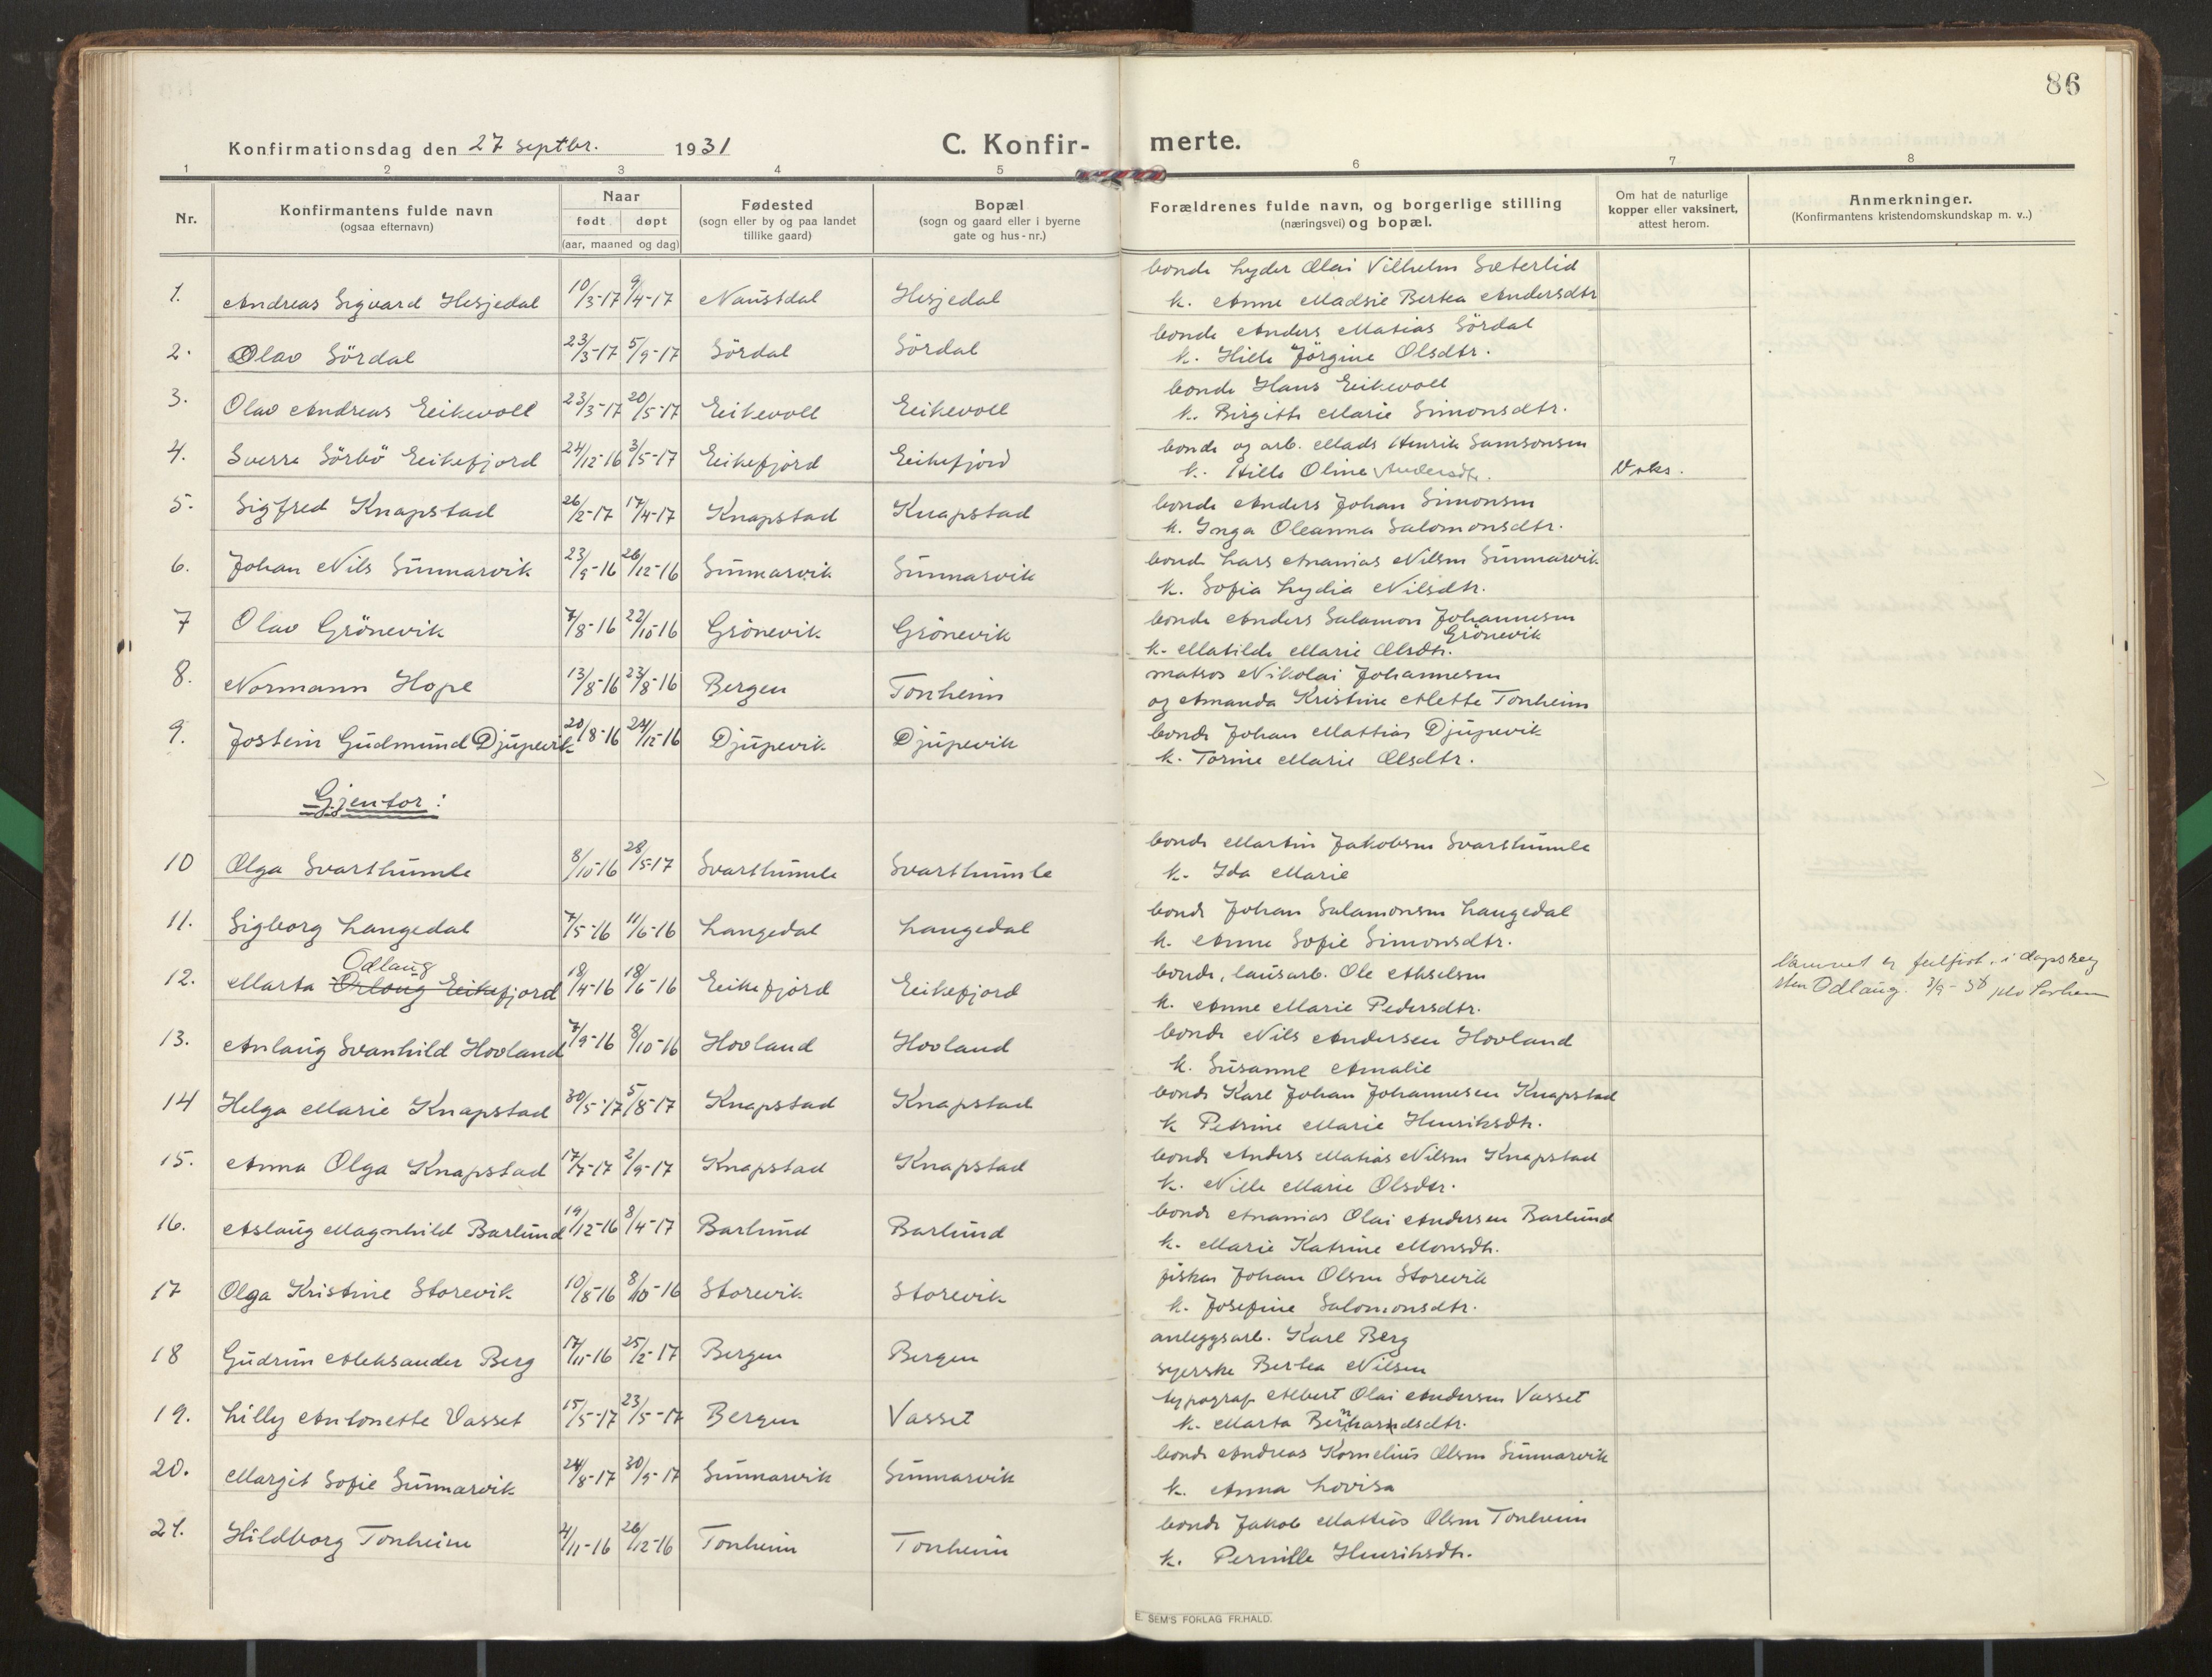 86
Konfirmationsdag den 27 septbr. 1931 C. Konfir- merte.
1 2 3 4 5 6 7 8
Nr. Konfirmantens fulde navn (ogsaa efternavn) Naar født døpt (aar, maaned og dag) Fødested (sogn eller by og paa landet tillike gaard) Bopæl (sogn og gaard eller i byerne gate og hus-nr.) Forældrenes fulde navn, og borgerlige stilling (næringsvei) og bopæl. Om hat de naturlige kopper eller vaksinert, attest herom. Anmerkninger. (Konfirmantens kristendomskundskap m. v..)
bonde Lyder Olai Vilhelm Sæterlid
1. Andreas Sigvard Hesjedal 10/3-17 9/4-17 Naustdal Hesjedal k. Anne Madsie Bertea Andersdtr
bonde Anders Matias Sördal
2. Olav Sördal 23/3-17 5/9-17 Sördal Sördal k. Hille Jörgine Olsdtr.
bonde Hans Eikevoll
3. Olav Andreas Eikevoll 23/3-17 20/5-17 Eikevoll Eikevoll k. Birgitte Marie Simonsdtr.
bonde og arb. Mads Henrik Samsonsen
4. Sverre Sörbö Eikefjord 24/12-16 3/5-17 Eikefjord Eikefjord k. Hille Oline Andersdtr. Vaks.
bonde Anders Johan Simonsen
5. Sigfred Knapstad 26/2-17 17/4-17 Knapstad Knapstad k. Inga Oleanna Salomonsdtr.
bonde Lars Ananias Nilsen Sunnarvik
6. Johan Nils Sunnarvik 23/9-16 26/12-16 Sunnarvik Sunnarvik k. Sofia Lydia Nilsdtr.
bonde Anders Salamon Johannesen
Grönevik
7 Olav Grönevik 7/8-16 22/10-16 Grönevik Grönevik k. Matilde Marie Olsdtr.
matros Nikolai Johannesen
8. Normann Hope 13/8-16 23/8-16 Bergen Tonheim og Amanda Kristine Alette Tonheim
bonde Johan Mattias Djupevik
9. Jostein Gudmund Djupevik 20/8-16 24/12-16 Djupevik Djupevik k. Torine Marie Olsdtr.
Gjentor:
bonde Martin Jakobsen Svarthumle
10 Olga Svarthumle 8/10-16 28/5-17 Svarthumle Svarthumle k. Ida Marie
bonde Johan Salamonsen Langedal
11. Sigborg Langedal 7/5-16 11/6-16 Langedal Langedal k. Anne Sofie Simonsdtr.
Odlaug
bonde, lausarb. Ole Akselsen
12. Marta Orlaug Eikefjord 18/4-16 18/6-16 Eikefjord Eikefjord k. Anne Marie Pedersdtr.
i dapsreg
Odlaug.
bonde Nils Andersen Hovland
13. Anlaug Svanhild Hovland 7/9-16 8/10-16 Hovland Hovland k. Susanne Amalie
bonde Karl Johan Johannesen Knapstad
14 Helga Marie Knapstad 30/5-17 5/8-17 Knapstad Knapstad k Petrine Marie Henriksdtr.
bonde Anders Matias Nilsen Knapstad
15. Anna Olga Knapstad 17/7-17 2/9-17 Knapstad Knapstad k. Nille Marie Olsdtr.
bonde Ananias Olai Andersen Barlund
16. Aslaug Magnhild Barlund 19/12-16 8/4-17 Barlund Barlund k. Marie Katrine Monsdtr.
fiskar Johan Olsen Storevik
17 Olga Kristine Storevik 10/8-16 8/10-16 Storevik Storevik k. Josefine Salomonsdtr.
anleggsarb. Karl Berg
18 Gudrun Aleksander Berg 17/11-16 25/2-17 Bergen Bergen syerske Bertea Nilsen
typograf Albert Olai Andersen Vasset
19. Lilly Antonette Vasset 15/5-17 23/5-17 Bergen Vasset k. Marta
bonde Andreas Kornelius Olsen Sunnarvik
20. Margit Sofie Sunnarvik 24/8-17 30/9-17 Sunnarvik Sunnarvik k. Anna Lovisa
bonde Jakob Mattias Olsen Tonheim
21. Hildborg Tonheim 4/11-16 26/12-16 Tonheim Tonheim k. Pernille Henriksdtr.
E. SEM'S FORLAG FR.HALD.